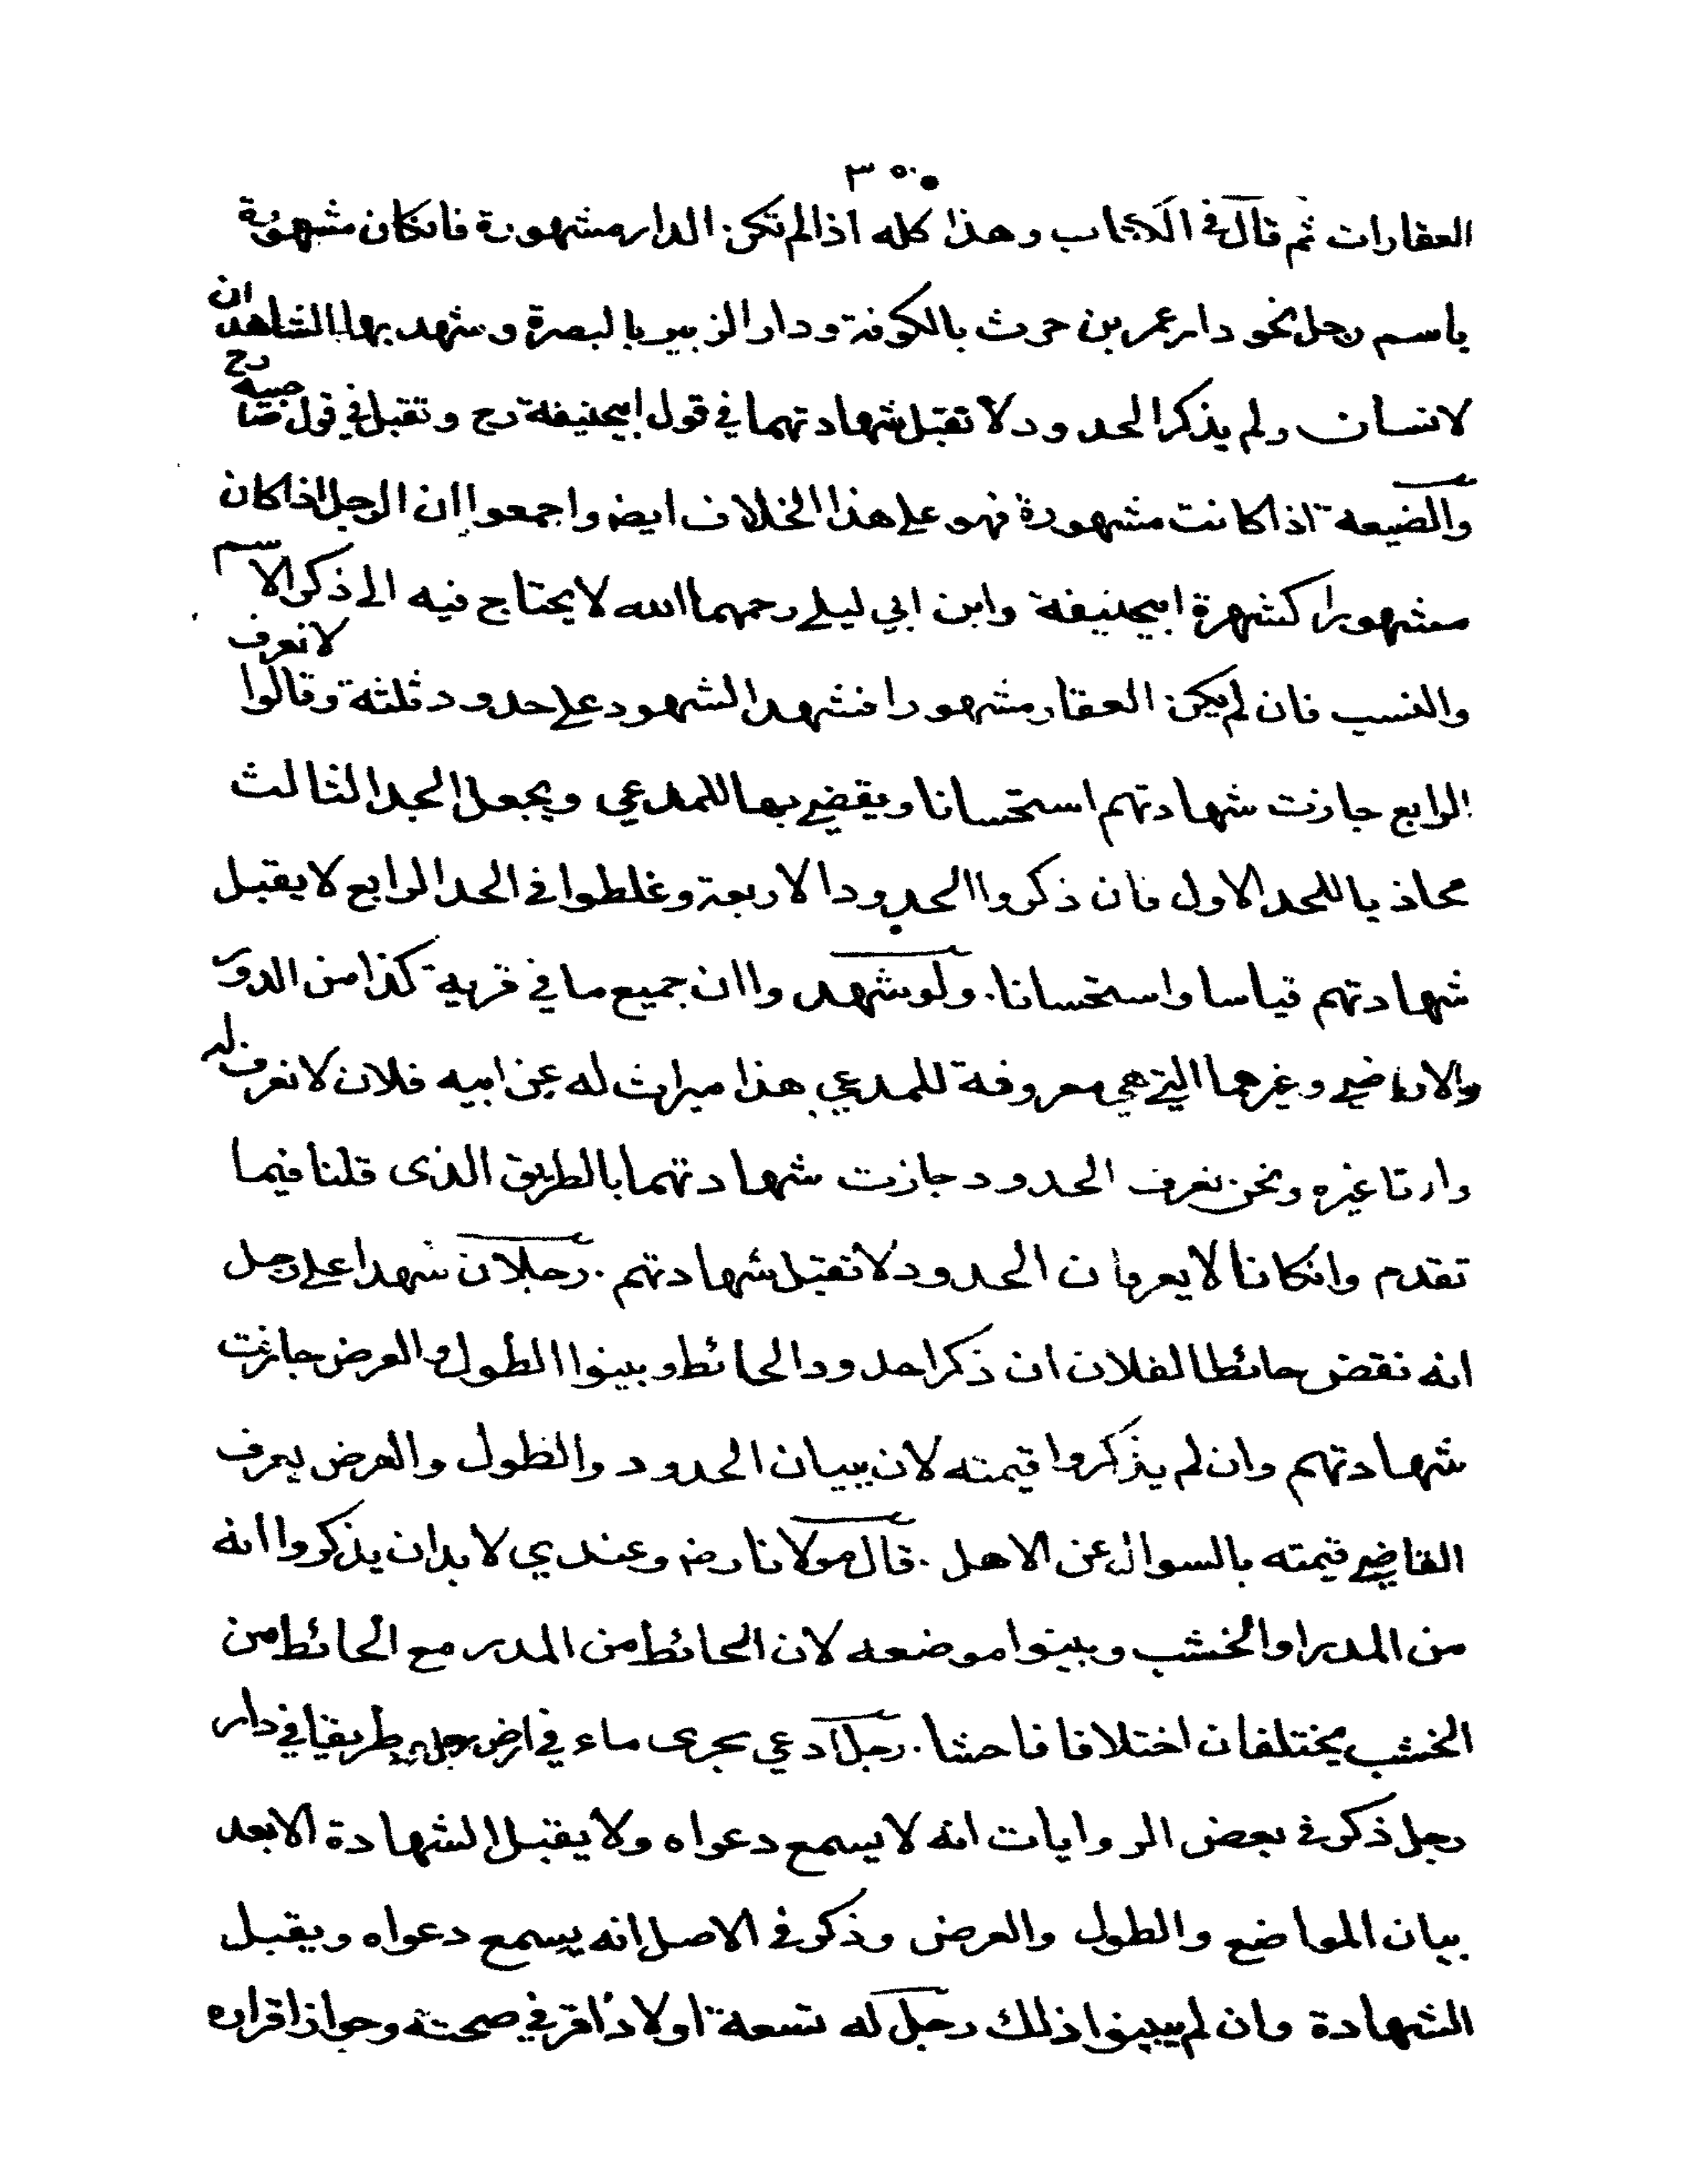 ٣٥٠
العقارات ثم قال في الكتاب وهذا كله اذا لم تكن الدار مشهورة فانكان مشهورة
باسم رجل نحو دار عمر بن حرث بالكوفة ودار الزبير بالبصرة وشهد بها الشاهدان
لانسان ولم يذكر الحدود لا تقبل شهادتهما في قول ابيحنيفة رح وتقبل في قول صاحبيه رح
والضيعة اذا كانت مشهورة فهو على هذا الخلاف ايضا واجمعوا ان الرجل اذا كان
مشهورا كشهرة ابيحنيفة وابن ابي ليلى رحمهما الله لا يحتاج فيه الى ذكر الاسم
والنسب فان لم يكن العقار مشهورا فشهد الشهود على حدود ثلثة وقالوا لا نعرف
الرابع جازت شهادتهم استحسانا ويقضي بها للمدعي ويجعل الحد الثالث
محاذيا للحد الاول فان ذكروا الحدود الاربعة وغلطوا في الحد الرابع لا يقبل
شهادتهم قياسا واستحسانا. ولو شهدوا ان جميع ما في قرية كذا من الدور
والاراضي وغيرهما التي هي معروفة للمدعي هذا ميراث له عن ابيه فلان لا نعرف له
وارثا غيره ونحن نعرف الحدود جازت شهادتهما بالطريق الذى قلنا فيما
تقدم وانكانا لا يعرفان الحدود لا تقبل شهادتهم. رجلان شهدا على رجل
انه نقض حائطا لفلان ان ذكرا حدود الحائط وبينوا الطول والعرض جازت
شهادتهم وان لم يذكروا قيمته لان ببيان الحدود والطول والعرض يعرف
القاضي قيمته بالسوال عن الاهل. قال مولانا رض وعندي لا بد ان يذكروا انه
من المدر او الخشب وبينوا موضعه لان الحائط من المدر مع الحائط من
الخشب يختلفان اختلافا فاحشا. رجل ادعي مجرى ماء في ارض رجل طريقا في دار
رجل ذكر في بعض الروايات انه لا يسمع دعواه ولا يقبل الشهادة الا بعد
بيان المواضع والطول والعرض وذكر في الاصل انه يسمع دعواه ويقبل
الشهادة وان لم يبينوا ذلك رجل له تسعة اولاد اقر في صحته وجواز اقراره